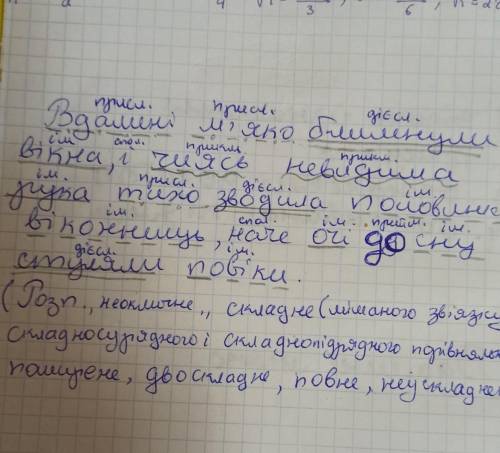 присл. присл. дієсл.
Вдалині м'яко блимнули
ім. спол. прикм. прикм.
вікна, і чиясь невидима
ім. присл. дієсл. ім.
рука тихо зводила половинк
ім. спол. ім. прийм. ім.
віконниць, наче очі до сну
дієсл. ім.
стуляли повіки.
(Розп., неокличне, складне (
складносурядного і складнопідрядного
поширене, двоскладне, повне, неускладнен